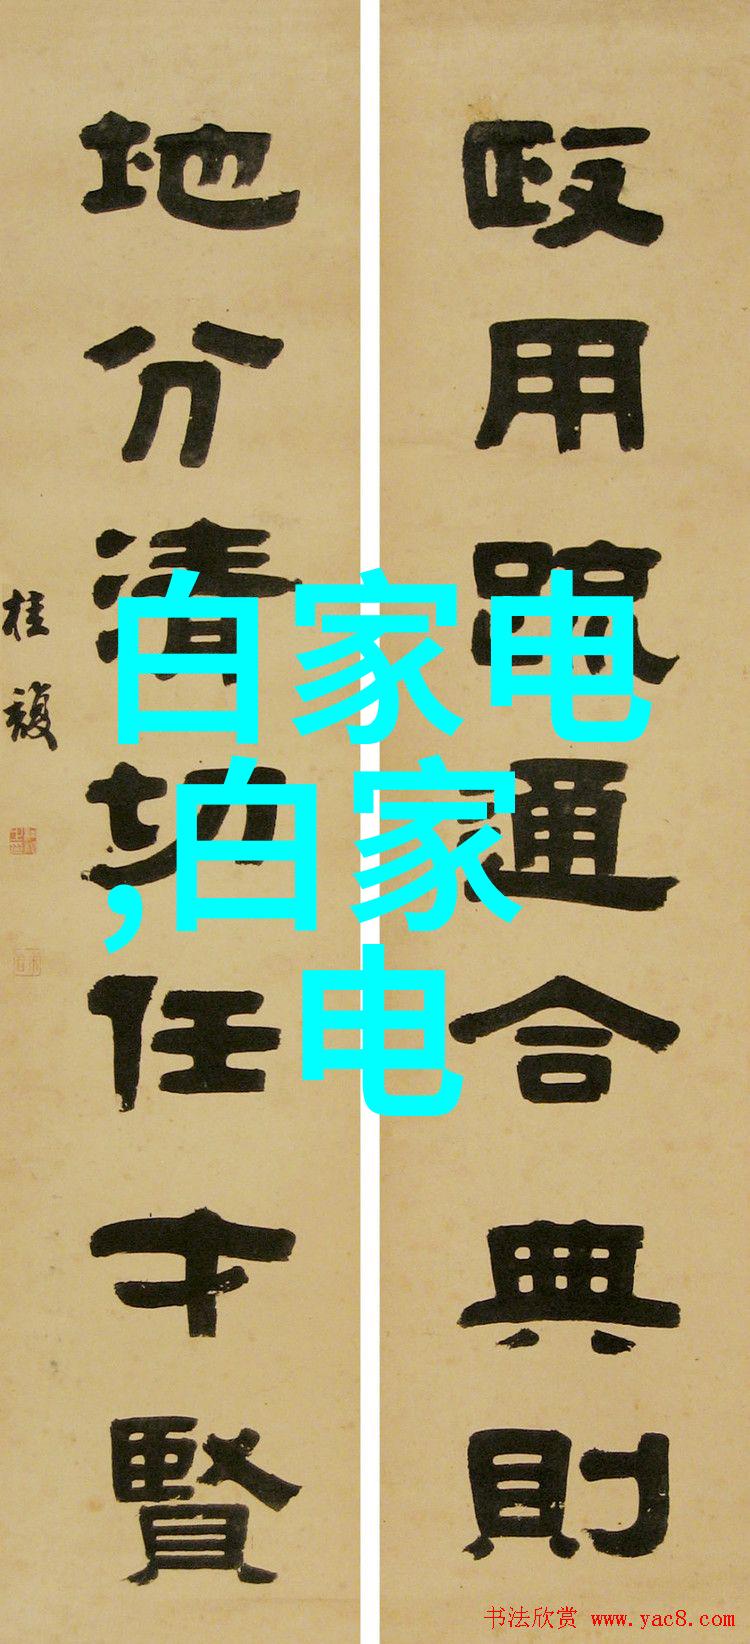 政用䟽通合典則
地分清切任才賢
桂馥
白家电
,白家
电
书法欣赏 www.yac8.com